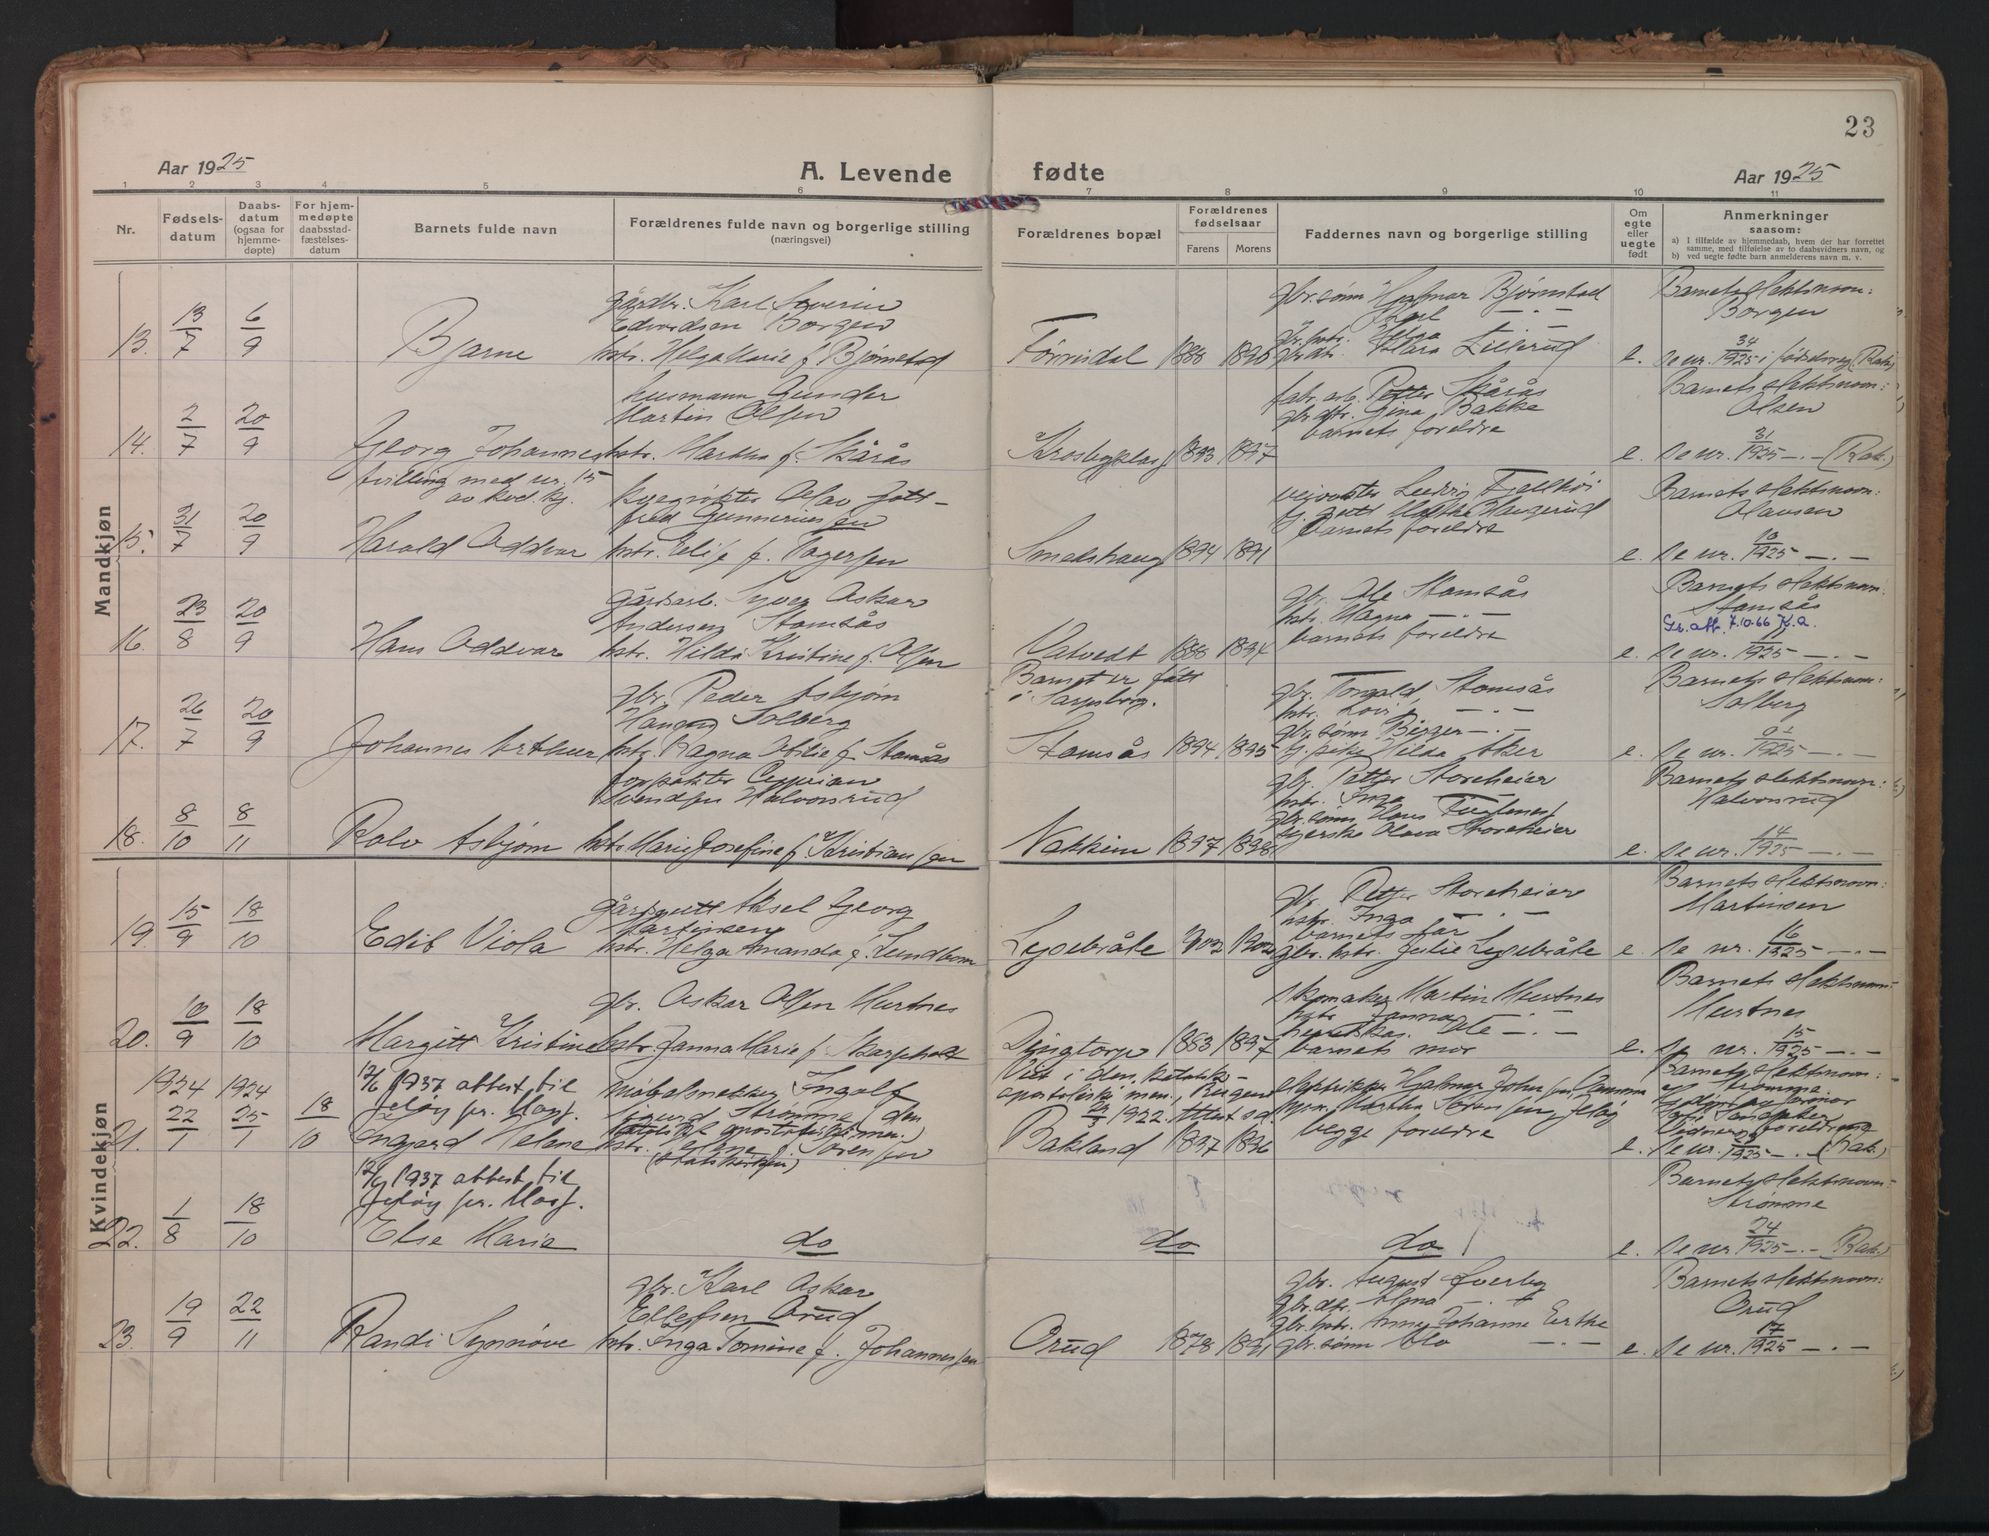 23
Aar 1925
A. Levende fødte
Aar 1925
1 2 3 4 5 6 7 8 9 10 11
Nr.
Fødsels-
datum
Daabs-
datum
(ogsaa for
hjemme-
døpte)
For hjem-
medøpte
daabsstad-
fæstelses-
datum
Barnets fulde navn
Forældrenes fulde navn og borgerlige stilling
(næringsvei)
Forældrenes bopæl
Forældrenes
fødselsaar
Farens Morens
Faddernes navn og borgerlige stilling
Om
egte
eller
uegte
født
Anmerkninger
saasom:
a) I tilfælde av hjemmedaab, hvem der har forrettet
samme, med tilføielse av to daabsvidners navn, og
b) ved uegte fødte barn anmelderens navn m. v.
Mandkjøn
13. 13/7 6/9
Bjarne
gårdbr. Karl Severin
Edvardsen Borgen
hstr. Helga Marie f. Bjørnstad
1888 1890
gbr.sønn Hjalmar Bjørnstad
Lillerud
e.
Barnets slektsnavn:
Borgen
Se nr. 34/1925 i fødselsreg (Rak.)
14. 2/7 20/9
Georg Johannes
husmann Gunder
Martin Olsen
hstr. Martha f. Skårås
Krosbyplass 1893 1897
fabr. arb. Petter Skårås
gbr.dtr. Gina Bakke
barnets foreldre
e.
Barnets slektsnavn:
Olsen
Se nr. 31/1925 -.- (Rak.)
tvilling med nr. 15
av kvd. kj.
15. 31/7 20/9
Harald Oddvar
Olav Gott-
fred Gunneriussen
hstr. Elise f. Torgersen
1894 1891
Ludvig
Haugerud
barnets foreldre
e.
Barnets slektsnavn:
Olausen
Se nr. 10/1925 -.-
16. 23/8 20/9
Hans Oddvar
gårdsarb. Syver Oskar
Andersen Stomsås
hstr. Hilda Kristine f. Olsen
Vatvedt 1888 1894
gbr. Ole Stomsås
hstr. Magna -.-
barnets foreldre
e.
Barnets slektsnavn:
Stomsås
7.10.66 K.a.
Se nr. 11/1925 -.-
17. 26/7 20/9
Johannes Arthur
gbr. Peder Asbjørn
Hansen Solberg
hstr. Ragna Otilie f. Stomsås
Barnet er født
i Sarpsborg.
Stomsås 1894 1895
gbr. Torvald Stomsås
hstr. Lovise -.-
gbr sønn Birger -.-
Hilda Aker
e.
Barnets slektsnavn:
Solberg
Se nr. 1925 -.-
18. 8/10 8/11
Rolv Asbjørn
forpakter Cyprian
Svendsen Halvorsrud
hstr. Marie Josefine f. Kristiansen
Nakkim 1897 1898
gbr. Petter Storeheier
hstr. Inga
gbr sønn Hans
syerske Olava Storeheier
e.
Barnets slektsnavn:
Halvorsrud
Se nr. 14/1925 -.-
Kvindekjøn
19. 15/9 18/10
Edit Viola
gårdsgutt Aksel Georg
Martinsen
hstr. Helga Amanda f. Lundbom
Lysebråte 1902 1902
gbr. Petter Storeheier
hstr. Inga -.-
barnets far
gbr. hstr. Julie Lysebråte
e.
Barnets slektsnavn:
Martinsen
Se nr. 16/1925 -.-
20. 10/9 18/10
Margitt Kristine
gbr. Oskar Olsen Myrtnes
hstr. Janna Marie f. Skarpholt
Dyngtorp 1883 1897
skomaker Martin Myrtnes
hstr. Janna
Ole -.-
barnets mor
e.
Barnets slektsnavn:
Myrtnes
Se nr. 15/1925 -.-
12/6 1937 attest til
Jeløy pr. Moss.
1924 1924
21. 22/1 25/1 18/10
Ingjerd Helene
møbelsnekker Ingolf
Sigurd Strømme (den
katolsk apostoliske men.)
hstr. Helene f. Sørensen
(statskirken)
Viet i den katolsk-
apostoliske men.,
1922. Attest sd.
Bakland 1897 1896
elektriker Hjalmar Johnsen
Martha Sørensen, Jeløy
begge foreldre
e.
Barnets slektsnavn:
Strømme
Se nr. 23/1925 -.- (Rak.)
12/6 1937 attest til
Jeløy pr. Moss.
22. 1/8 18/10
Else Marie
do do do
e.
Barnets slektsnavn:
Strømme
Se nr. 24/1925 -.- (Rak.)
23. 19/9 22/11
Randi Synnøve
gbr. Karl Oskar
Ellefsen Orud
hstr. Inga Tomine f. Johannessen
Orud 1878 1891
gbr. August Sverby
gbr.dtr. Alma -.-
gbr. hstr. Anne Johanne Ertke
gbr. sønn Alo -.-
e.
Barnets slektsnavn:
Orud
Se nr. 17/1925 -.-